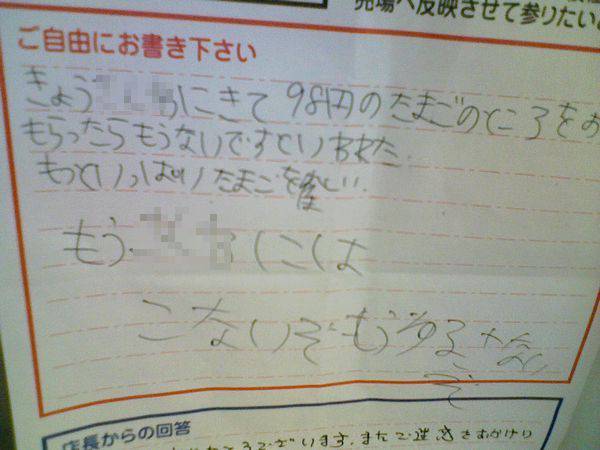 売場へ反映させて参りたいと
ご自由にお書き下さい
きょう ろにきて 98円のたまごのところをお
もらったらもうないですといわれた
もっといっぱいたまごを
もう にくは
こないぞもう
ぞ
店長からの回答
ございます。またご迷惑をおかけし